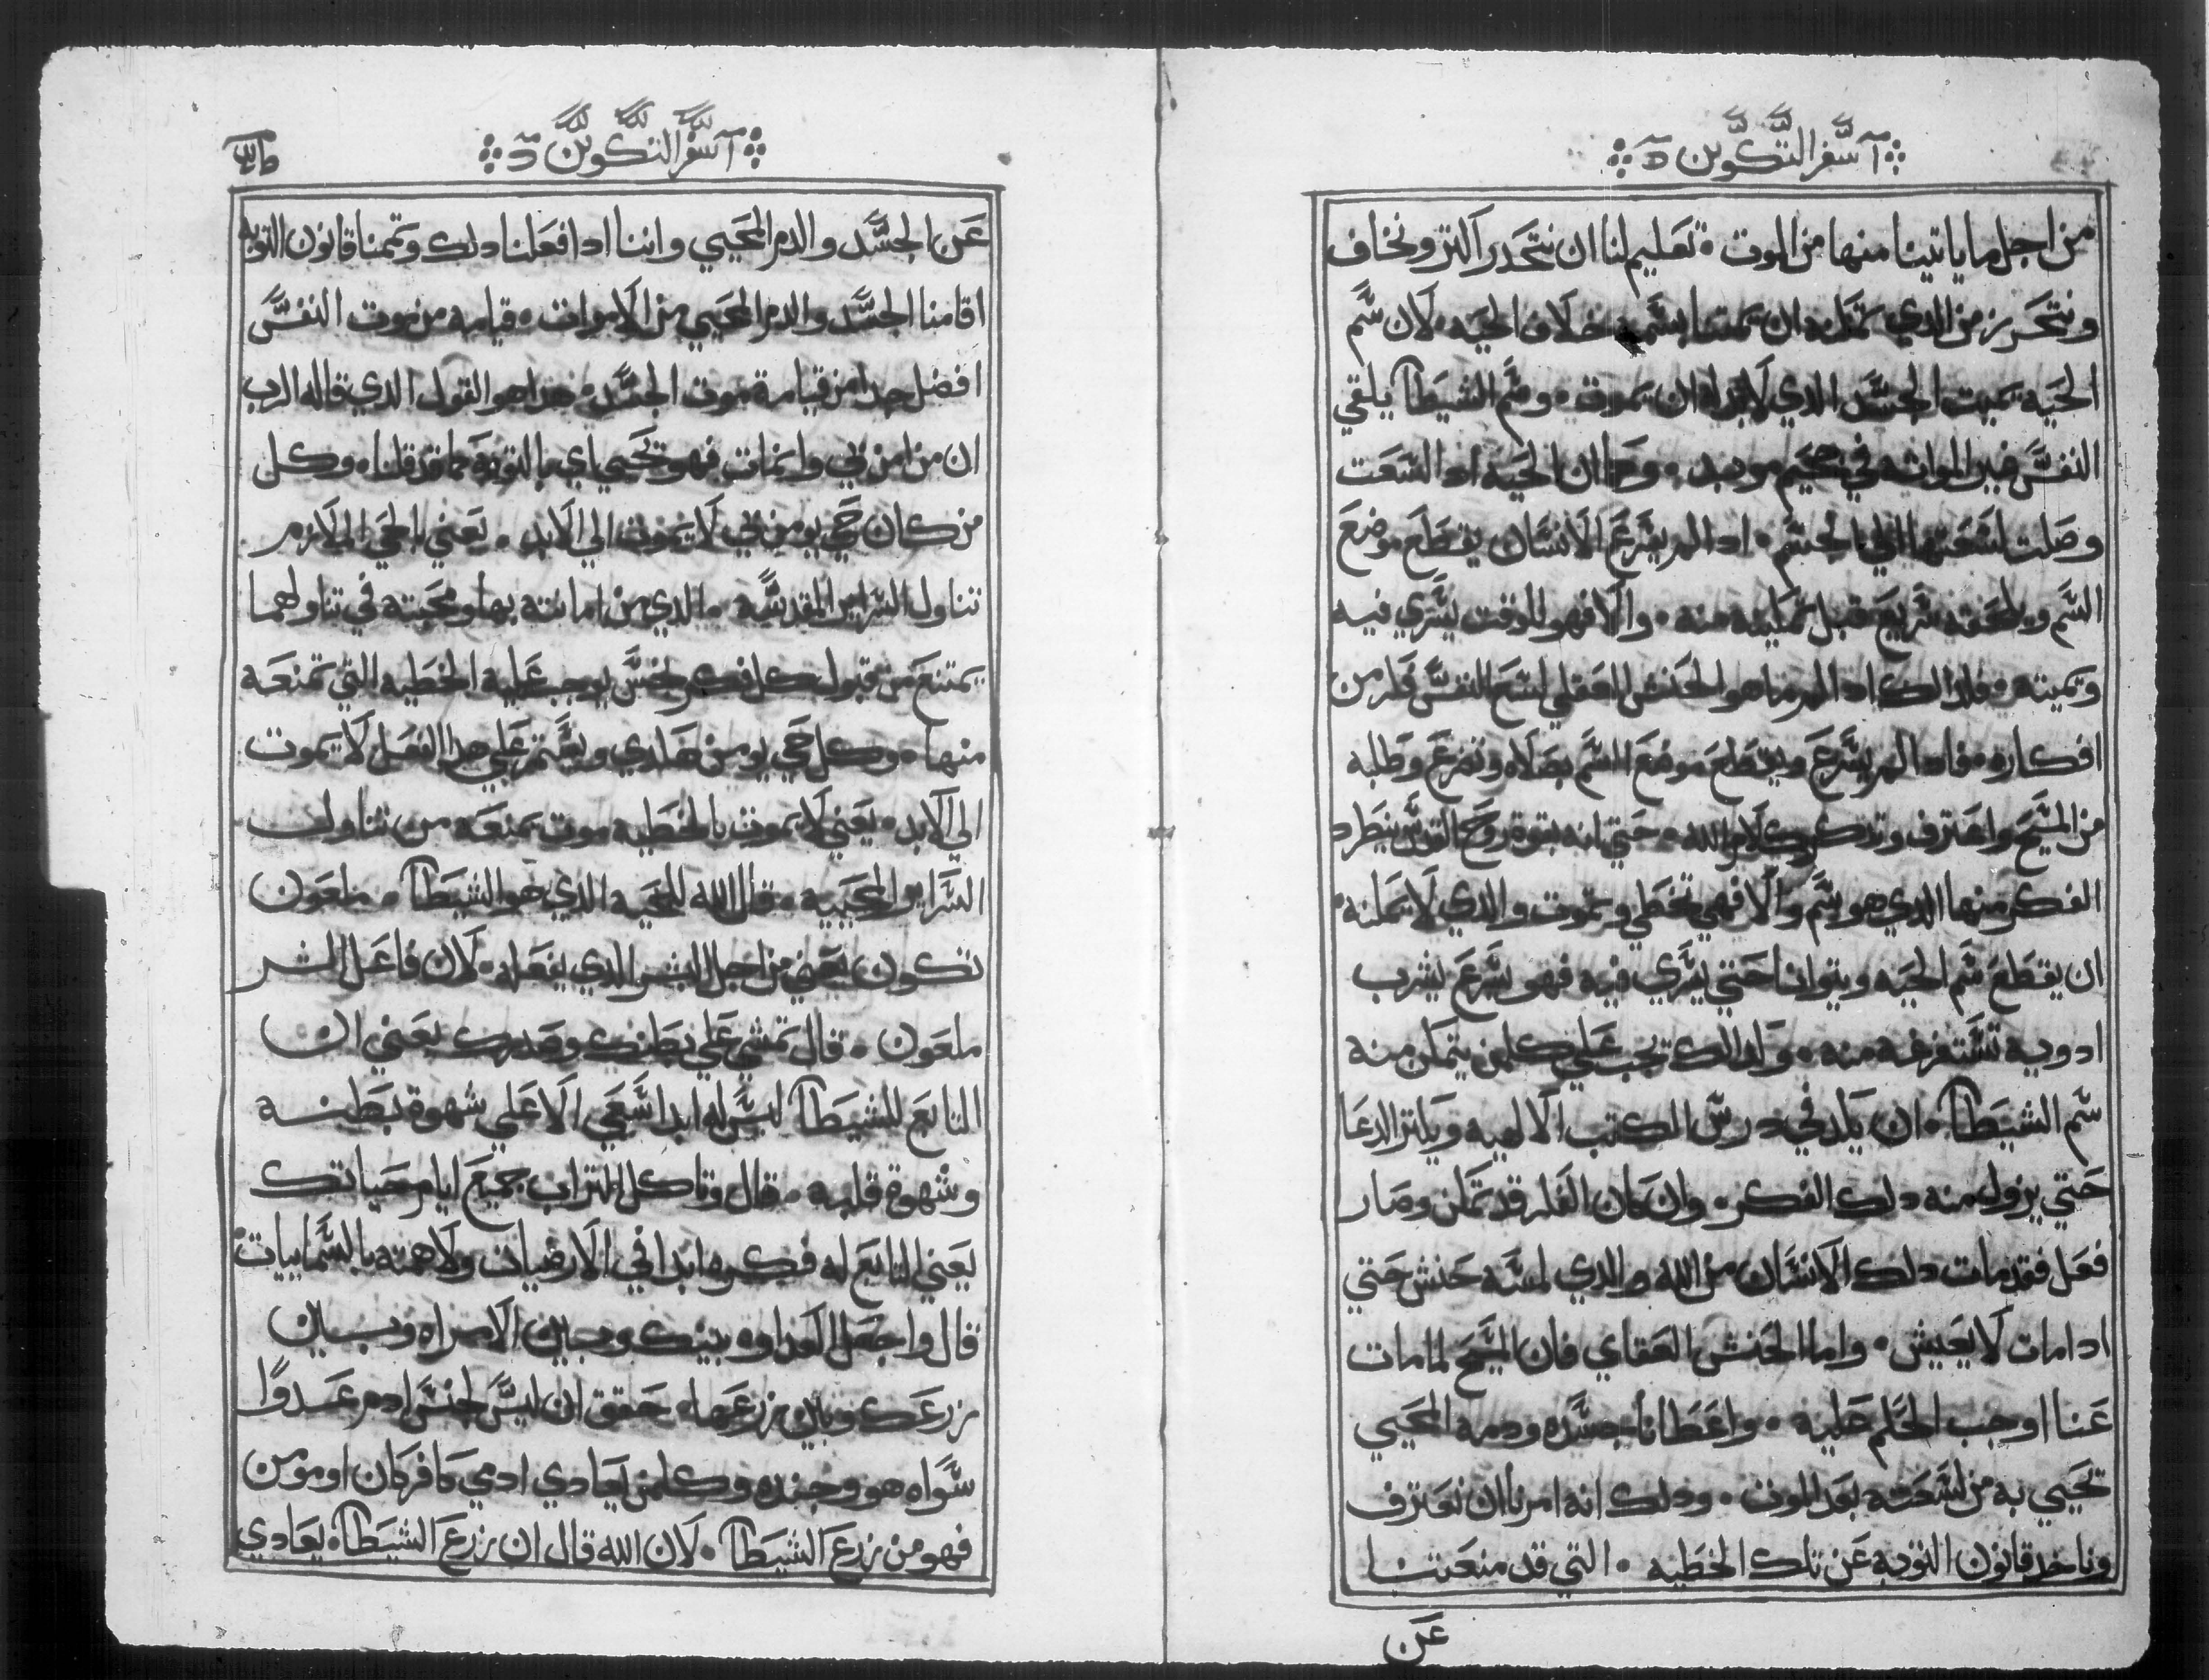 ا سفر التكوين
من اجل ما ياتينا منها من الموت ٠ تعليم لنا ان نتحدر اكتر ونخاف
ونتحرز من الدي يمكنه ان يميتنا بسمه خلاف الحيه ٠ لان سم
الحيه يميت الجسد الدي لابد له ان يموت ٠ وسم الشيطان يلقي
النفس في جحيم موبد ٠ وكما ان الحيه ادا لسعت
وصلت لسعتها الي الجسم ٠ ادا لم يسرع الانسان يقطع موضع
السم ويلحقه سريع قبل تمكينه منه ٠ والا فهو للوقت يسري فيه
ويميته ٠ فلدالك ادا لم هو الحنش العقلي لسع النفس فكر من
افكاره ٠ فادا لم يسرع ويقطع موضع السم بصلاه وتضرع وطلبه
من المسيح واعتراف وتدكر كلام الله ٠ حتي انه بقوة روح القدس ينطرد
الفكر منها الدي هو سم والا فهي تخطي وتموت والدي لا يمكنه
ان يقطع سم الحيه ويتوانا حتي يسري فيه فهو يسرع يشرب
ادويه تستفرغه منه ٠ ولدالك يجب علي كلمن يتمكن منه
سم الشيطان ٠ ان يلد في درس الكتب الالهيه ويكتر الدعا
حتي يزول منه دلك الفكر ٠ وان كان الفكر قد تمكن وصار
فعل فقد مات دلك الانسان من الله والدي لسعه حنش حتي
ادا مات لا يعيش ٠ واما الحنش العقلي فان المسيح لما مات
عنا اوجب الحكم عليه ٠ واعطانا جسده ودمه المحيي
نحيي به من لسعته بعد الموت ٠ ودلك انه امرنا ان نعترف
وناخد قانون التوبه عن تلك الخطيه ٠ التي قد منعتنا
عن
ا سفر التكوين
عن الجسد والدم المحيي واننا ادا فعلنا دلك وتممنا قانون التوبه
اقامنا الجسد والدم المحيي من الاموات ٠ قيامه من موت النفس
افضل جدا من قيامة موت الجسد ٠ هدا هو القول الدي قاله الرب
ان من امن بي وان مات فهو يحيي اي بالتوبه كما قد قلناه وكل
من كان حي يومن بي لا يموت الي الابد ٠ يعني الحي الملازم
تناول السراير المقدسه ٠ الدي من امانته بها ومحبته في تناولهما
يمتنع من قبول كل فكر نجس يوجب عليه الخطيه التي تمنعه
منها ٠ وكل حي يومن هكدي ويستمر علي هدا الفعل لا يموت
الي الابد ٠ يعني لا يموت بالخطيه موت يمنعه من تناول
السراير المحييه ٠ قال الله للحيه الدي هو الشيطان ٠ ملعون
تكون يعني من اجل الشر الدي يفعله ٠ لان فاعل الشر
ملعون ٠ قال تمشي علي بطنك وصدرك يعني ان
التابع للشيطان ليس له ابدا سعي الا علي شهوة بطنه
وشهوة قلبه ٠ قال وتاكل التراب جميع ايام حياتك
يعني التابع له فكره ابدا في الارضيات ولا همته بالسماييات
قال واجعل العداوه بينك وبين الامراه وبين
زرعك وبين زرعها ٠ حقق ان ليس لجنس ادم عدوا
سواه هو وجنده وكلمن يعادي ادمي كافر كان او مومن
فهو من زرع الشيطان ٠ لان الله قال ان زرع الشيطان يعادي